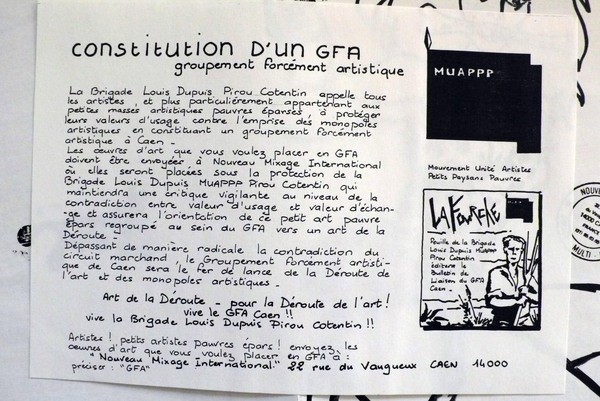 constitution D'un GFA
groupement forcément artistique
La Brigade Louis Dupuis Pirou Cotentin appelle tous
les artistes, et plus particulièrement appartenant aux
petites masses artistiques pauvres éparses, à protéger
leurs valeurs d'usage contre l'emprise des monopoles
artistiques en constituant un groupement forcément
artistique à Caen.
Les œuvres d'art que vous voulez placer en GFA
doivent être envoyées à Nouveau Mixage International
où elles seront placées sous la protection de la
Brigade Louis Dupuis MUAPPP Pirou Cotentin qui
maintiendra une critique vigilante au niveau de la
contradiction entre valeur d'usage et valeur d'échan-
-ge et assurera l'orientation de ce petit art pauvre
épars regroupé au sein du GFA vers un art de la
Déroute.
Dépassant de manière radicale la contradiction du
circuit marchand, le Groupement Forcément artisti-
que de Caen sera le fer de lance de la Déroute de
l'art et des monopoles artistiques.
Art de la Déroute - pour la Déroute de l'art!
vive le GFA Caen!!
vive la Brigade Louis Dupuis Pirou Cotentin!!
Artistes! petits artistes pauvres épars! envoyez les
œuvres d'art que vous voulez placer en GFA à:
"Nouveau Mixage International" 22 rue du Vaugueux CAEN 14000
préciser: "GFA"
MUAPPP
Mouvement Unité Artistes
Petits Paysans Pauvres
Feuille de la Brigade
Louis Dupuis MUAPPP
Pirou Cotentin
éditera le
Bulletin de
Liaison du GFA
Caen.
MULTI